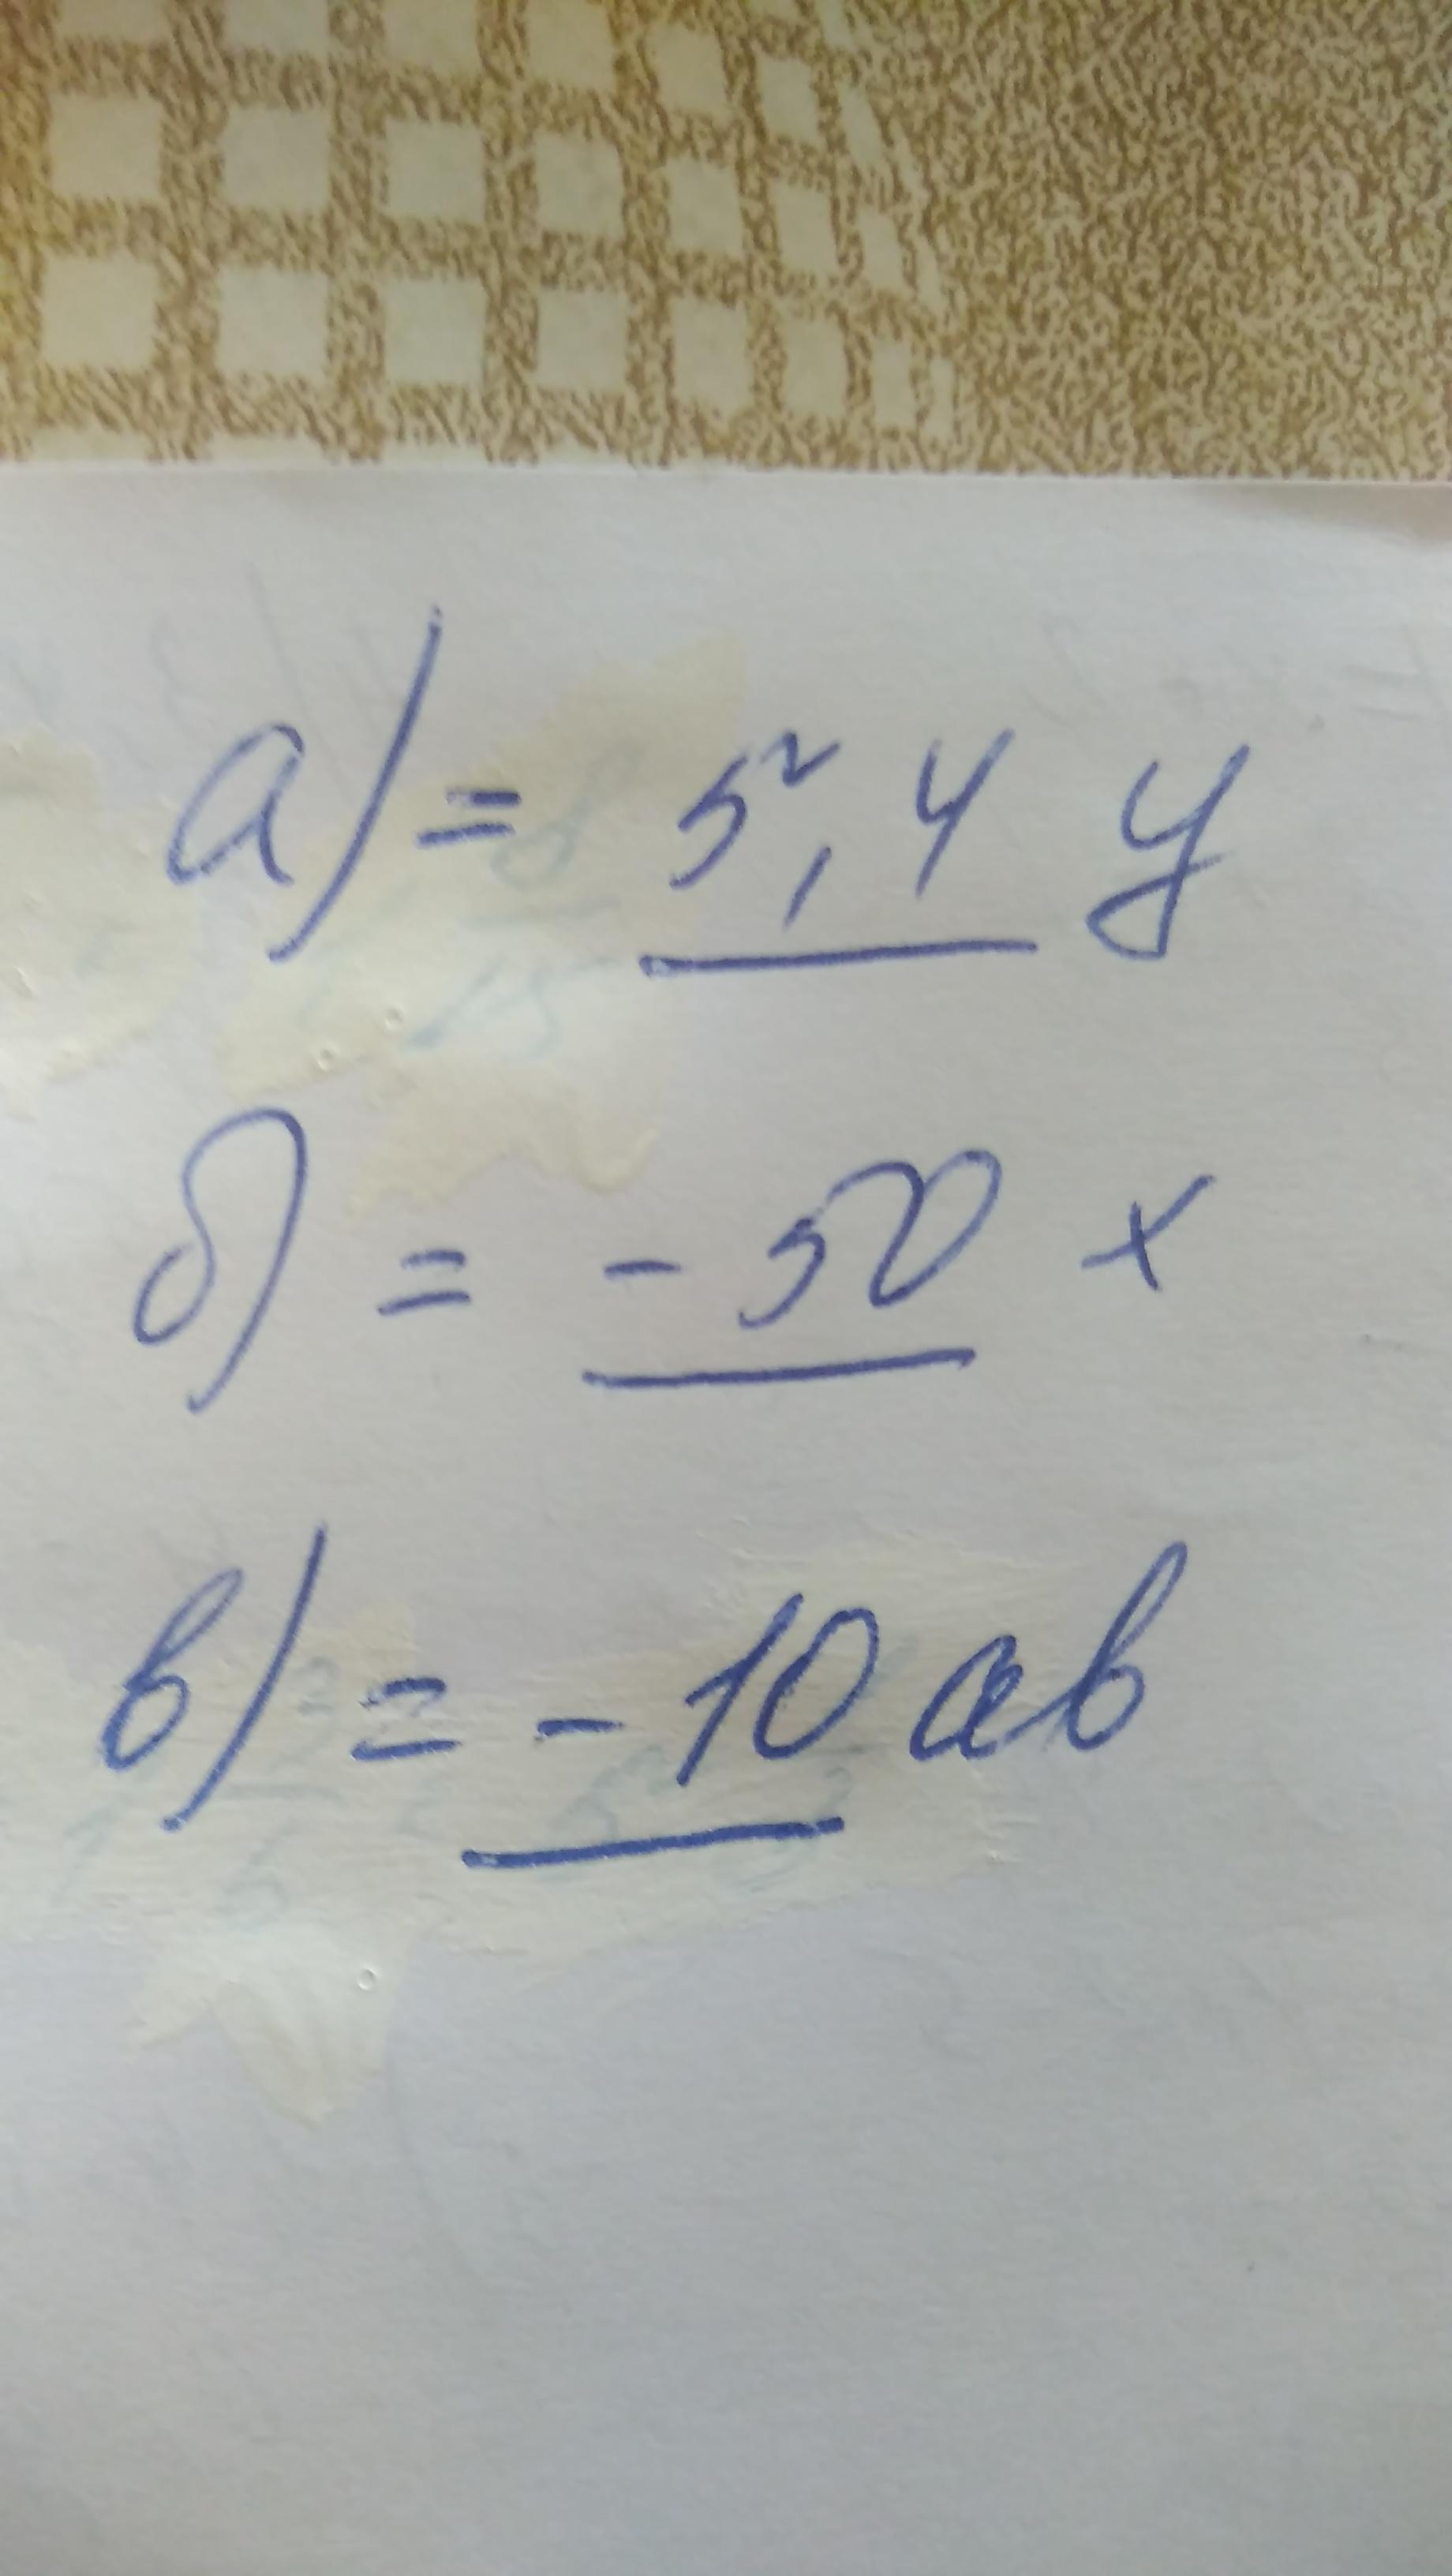 а) = 5,4 у
б) = - 50 х
в) = - 10 ав